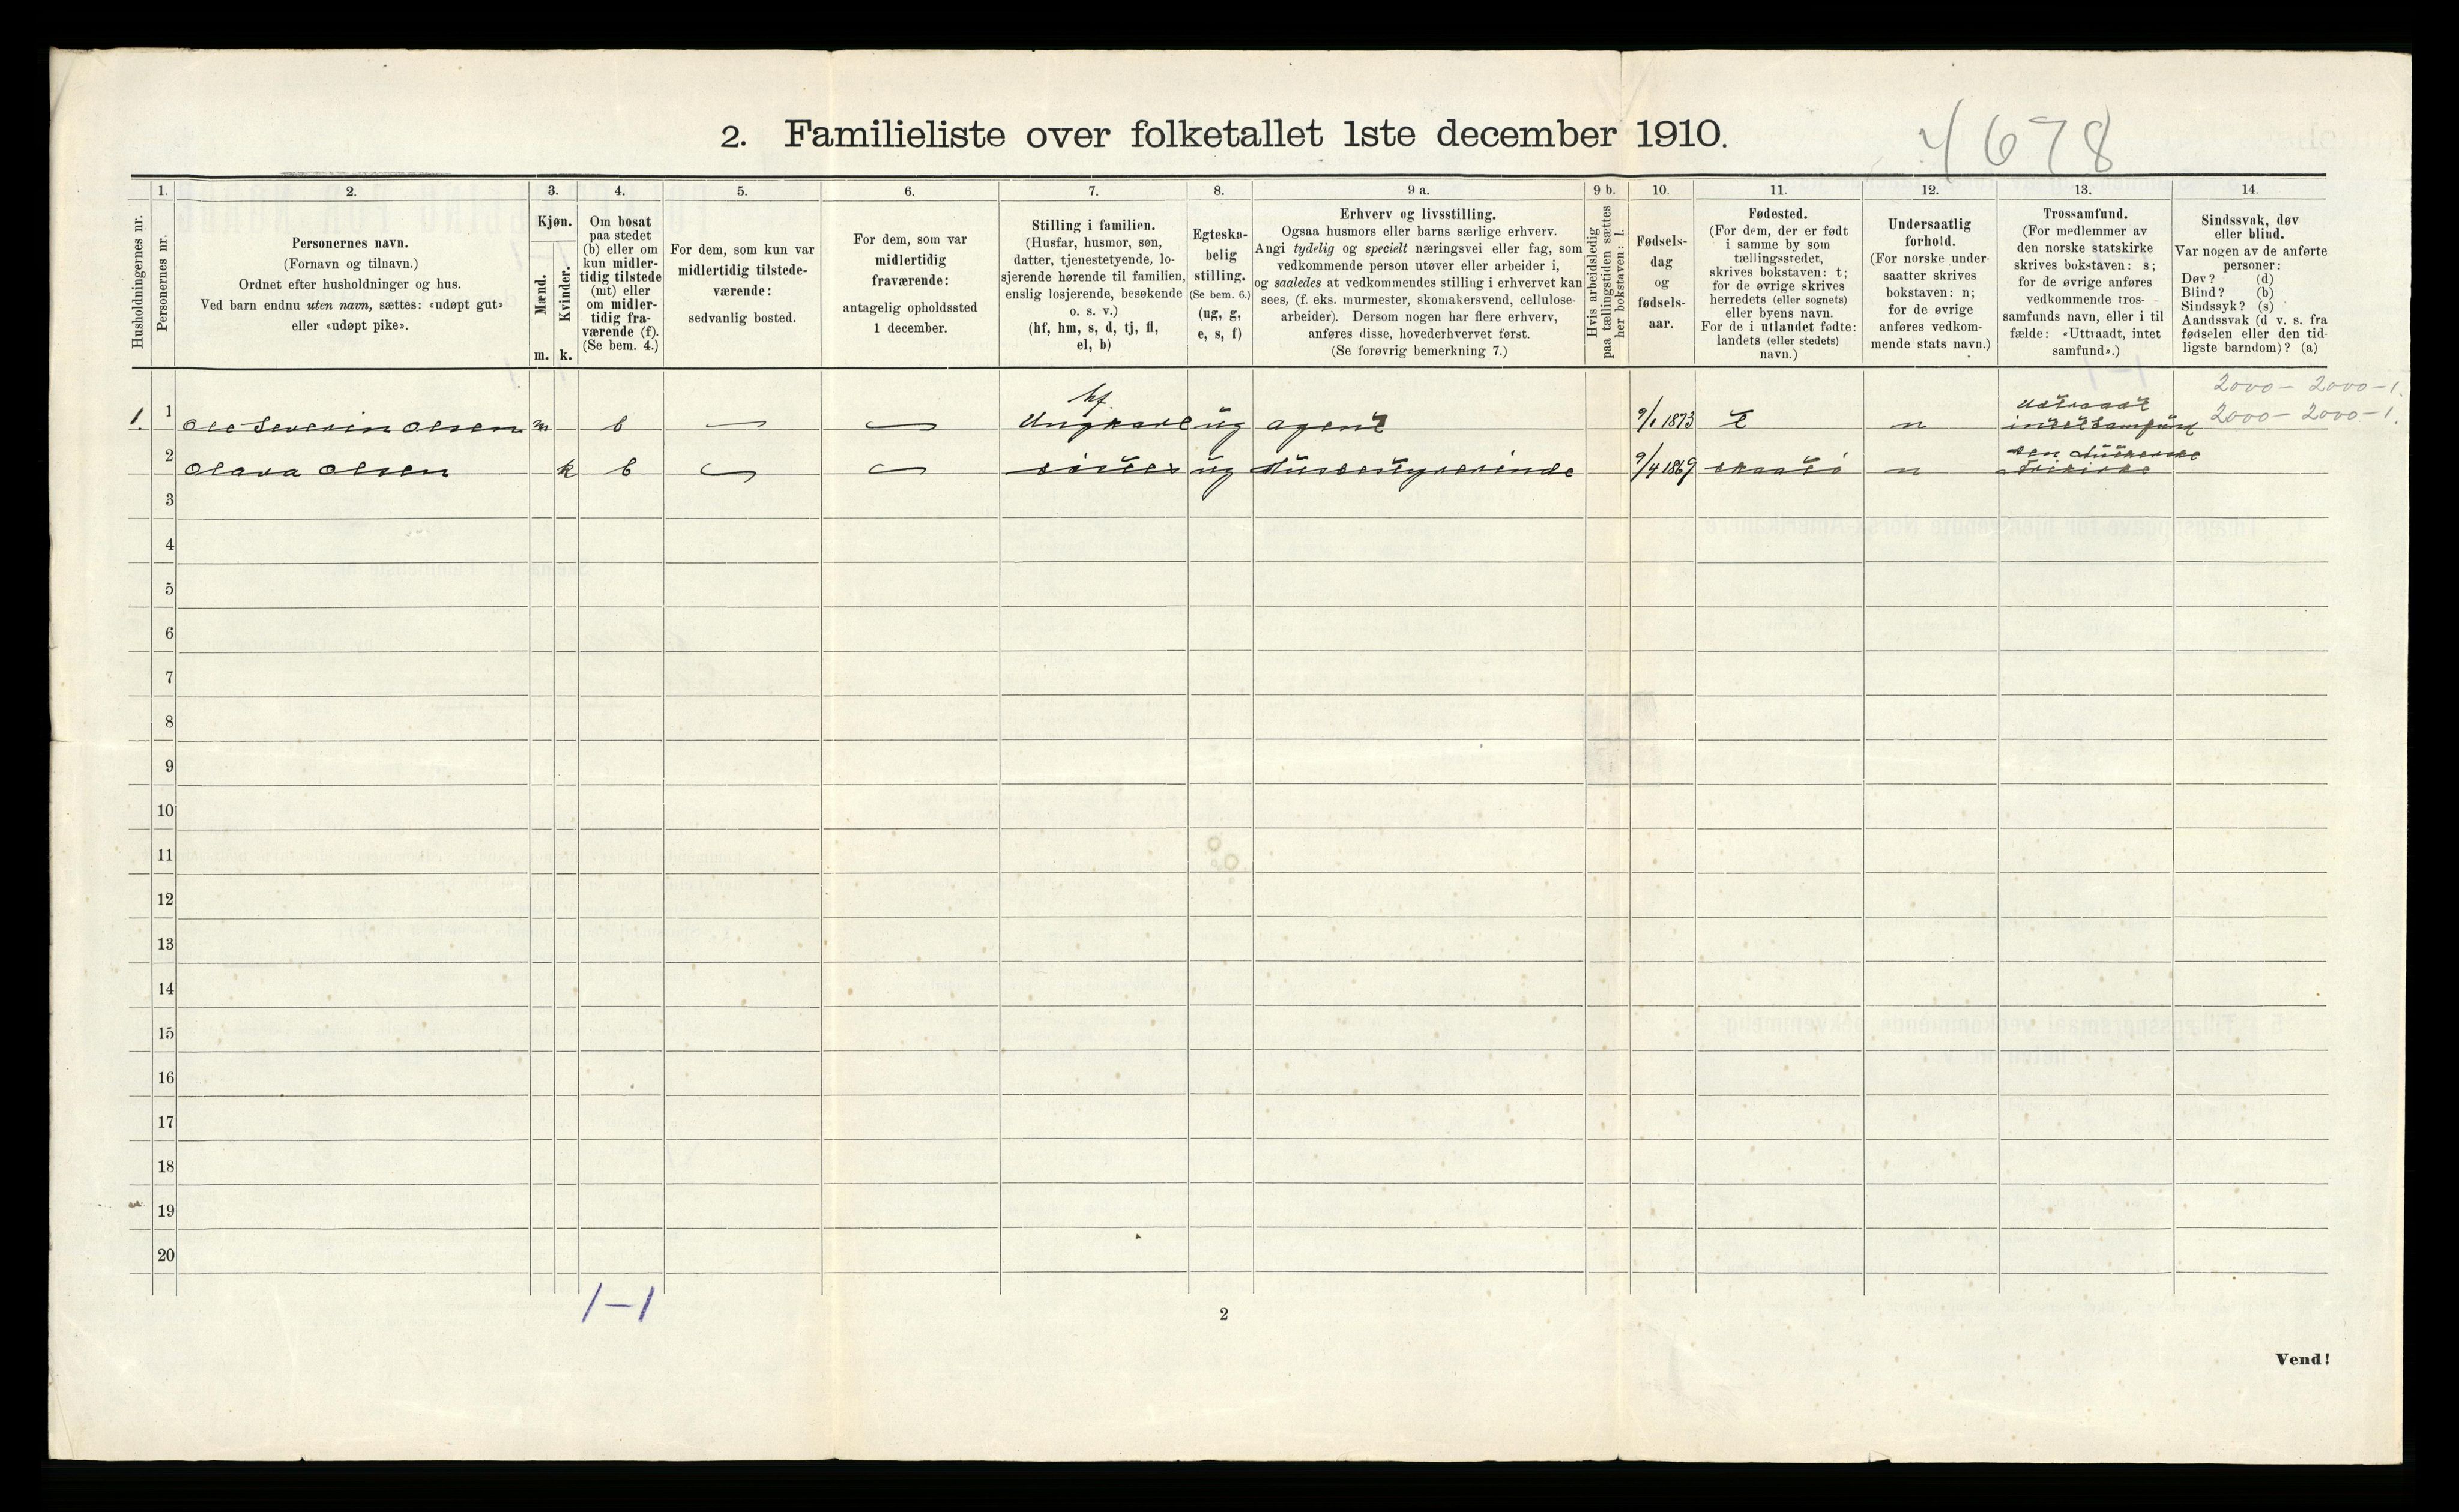 2. Familieliste over folketallet 1ste december 1910.
4678
Husholdningernes nr.
Personernes nr.
1.
2.
Personernes navn.
(Fornavn og tilnavn.)
Ordnet efter husholdninger og hus.
Ved barn endnu uten navn, sættes: «udøpt gut»
eller «udøpt pike».
3.
Kjøn.
Mænd.
Kvinder.
m. k.
4.
Om bosat
paa stedet
(b) eller om
kun midler-
tidig tilstede
(mt) eller
om midler-
tidig fra-
værende (f).
(Se bem. 4.)
5.
For dem, som kun var
midlertidig tilstede-
værende:
sedvanlig bosted.
6.
For dem, som var
midlertidig
fraværende:
antagelig opholdssted
1 december.
7.
Stilling i familien.
(Husfar, husmor, søn,
datter, tjenestetyende, lo-
sjerende hørende til familien,
enslig losjerende, besøkende
o. s. v.)
(hf, hm, s, d, tj, fl,
el, b)
8.
Egteska-
belig
stilling.
(Se bem. 6.)
(ug, g,
e, s, f)
9 a.
Erhverv og livsstilling.
Ogsaa husmors eller barns særlige erhverv.
Angi tydelig og specielt næringsvei eller fag, som
vedkommende person utøver eller arbeider i,
og saaledes at vedkommendes stilling i erhvervet kan
sees, (f. eks. murmester, skomakersvend, cellulose-
arbeider). Dersom nogen har flere erhverv,
anføres disse, hovederhvervet først.
(Se forøvrig bemerkning 7.)
9 b.
Hvis arbeidsledig
paa tællingstiden sættes
her bokstaven: l.
10.
Fødsels-
dag
og
fødsels-
aar.
11.
Fødested.
(For dem, der er født
i samme by som
tællingsstedet,
skrives bokstaven: t;
for de øvrige skrives
herredets (eller sognets)
eller byens navn.
For de i utlandet fødte:
landets (eller stedets)
navn.)
12.
Undersaatlig
forhold.
(For norske under-
saatter skrives
bokstaven: n;
for de øvrige
anføres vedkom-
mende stats navn.)
13.
Trossamfund.
(For medlemmer av
den norske statskirke
skrives bokstaven: s;
for de øvrige anføres
vedkommende tros-
samfunds navn, eller i til
fælde: «Uttraadt, intet
samfund».)
14.
Sindssvak, døv
eller blind.
Var nogen av de anførte
personer:
Døv? (d)
Blind? (b)
Sindssyk? (s)
Aandssvak (d v. s. fra
fødselen eller den tid-
ligste barndom)? (a)
hf. 2000 - 2000 - 1.
Udtraadt
1. 1 Ole Severin Olsen m b Ungkarl ug agent 9/1 1873 t n intet samfund 2000 - 2000 - 1.
den Lutherske
2 Olava Olsen k b søster ug Husbestyrerinde 9/4 1869 Skaatø n Frikirke
3
4
5
6
7
8
9
10
11
12
13
14
15
16
17
18
19
20
1-1
2
Vend!